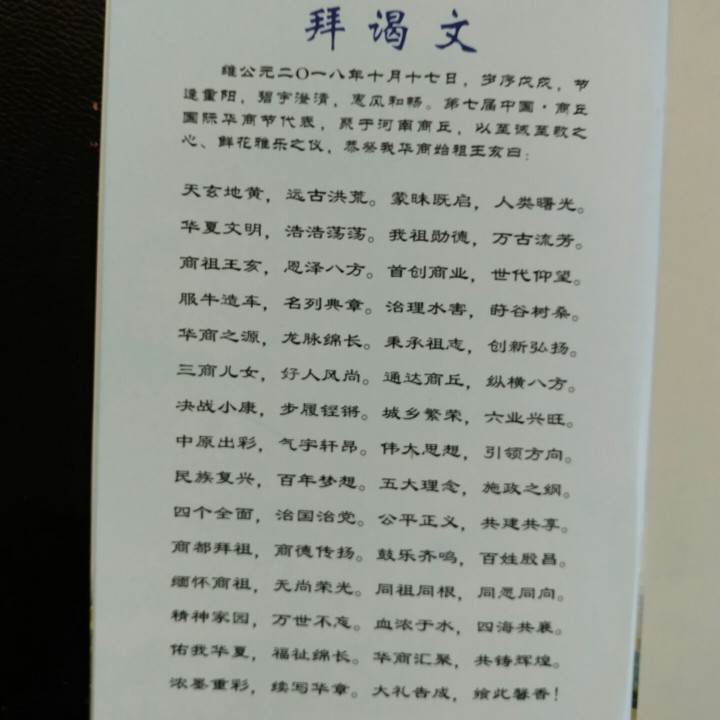 拜谒文
维公元二〇一八年十月十七日，岁序戊戌，节
逢重阳，碧宇澄清，惠风和畅。第七届中国·商丘
国际华商节代表，聚于河南商丘，以至诚至敬之
心、鲜花雅乐之仪，恭祭我华商始祖王亥曰：
天玄地黄，远古洪荒。蒙昧既启，人类曙光。
华夏文明，浩浩荡荡。我祖勋德，万古流芳。
商祖王亥，恩泽八方。首创商业，世代仰望。
服牛造车，名列典章。治理水害，莳谷树桑。
华商之源，龙脉绵长。秉承祖志，创新弘扬。
三商儿女，好人风尚。通达商丘，纵横八方。
决战小康，步履铿锵。城乡繁荣，六业兴旺。
中原出彩，气宇轩昂。伟大思想，引领方向。
民族复兴，百年梦想。五大理念，施政之纲。
四个全面，治国治党。公平正义，共建共享。
商都拜祖，商德传扬。鼓乐齐鸣，百姓殷昌。
缅怀商祖，无尚荣光。同祖同根，同忍同向。
精神家园，万世不忘。血浓于水，四海共襄。
佑我华夏，福祉绵长。华商汇聚，共铸辉煌。
浓墨重彩，续写华章。大礼告成，飨此馨香！